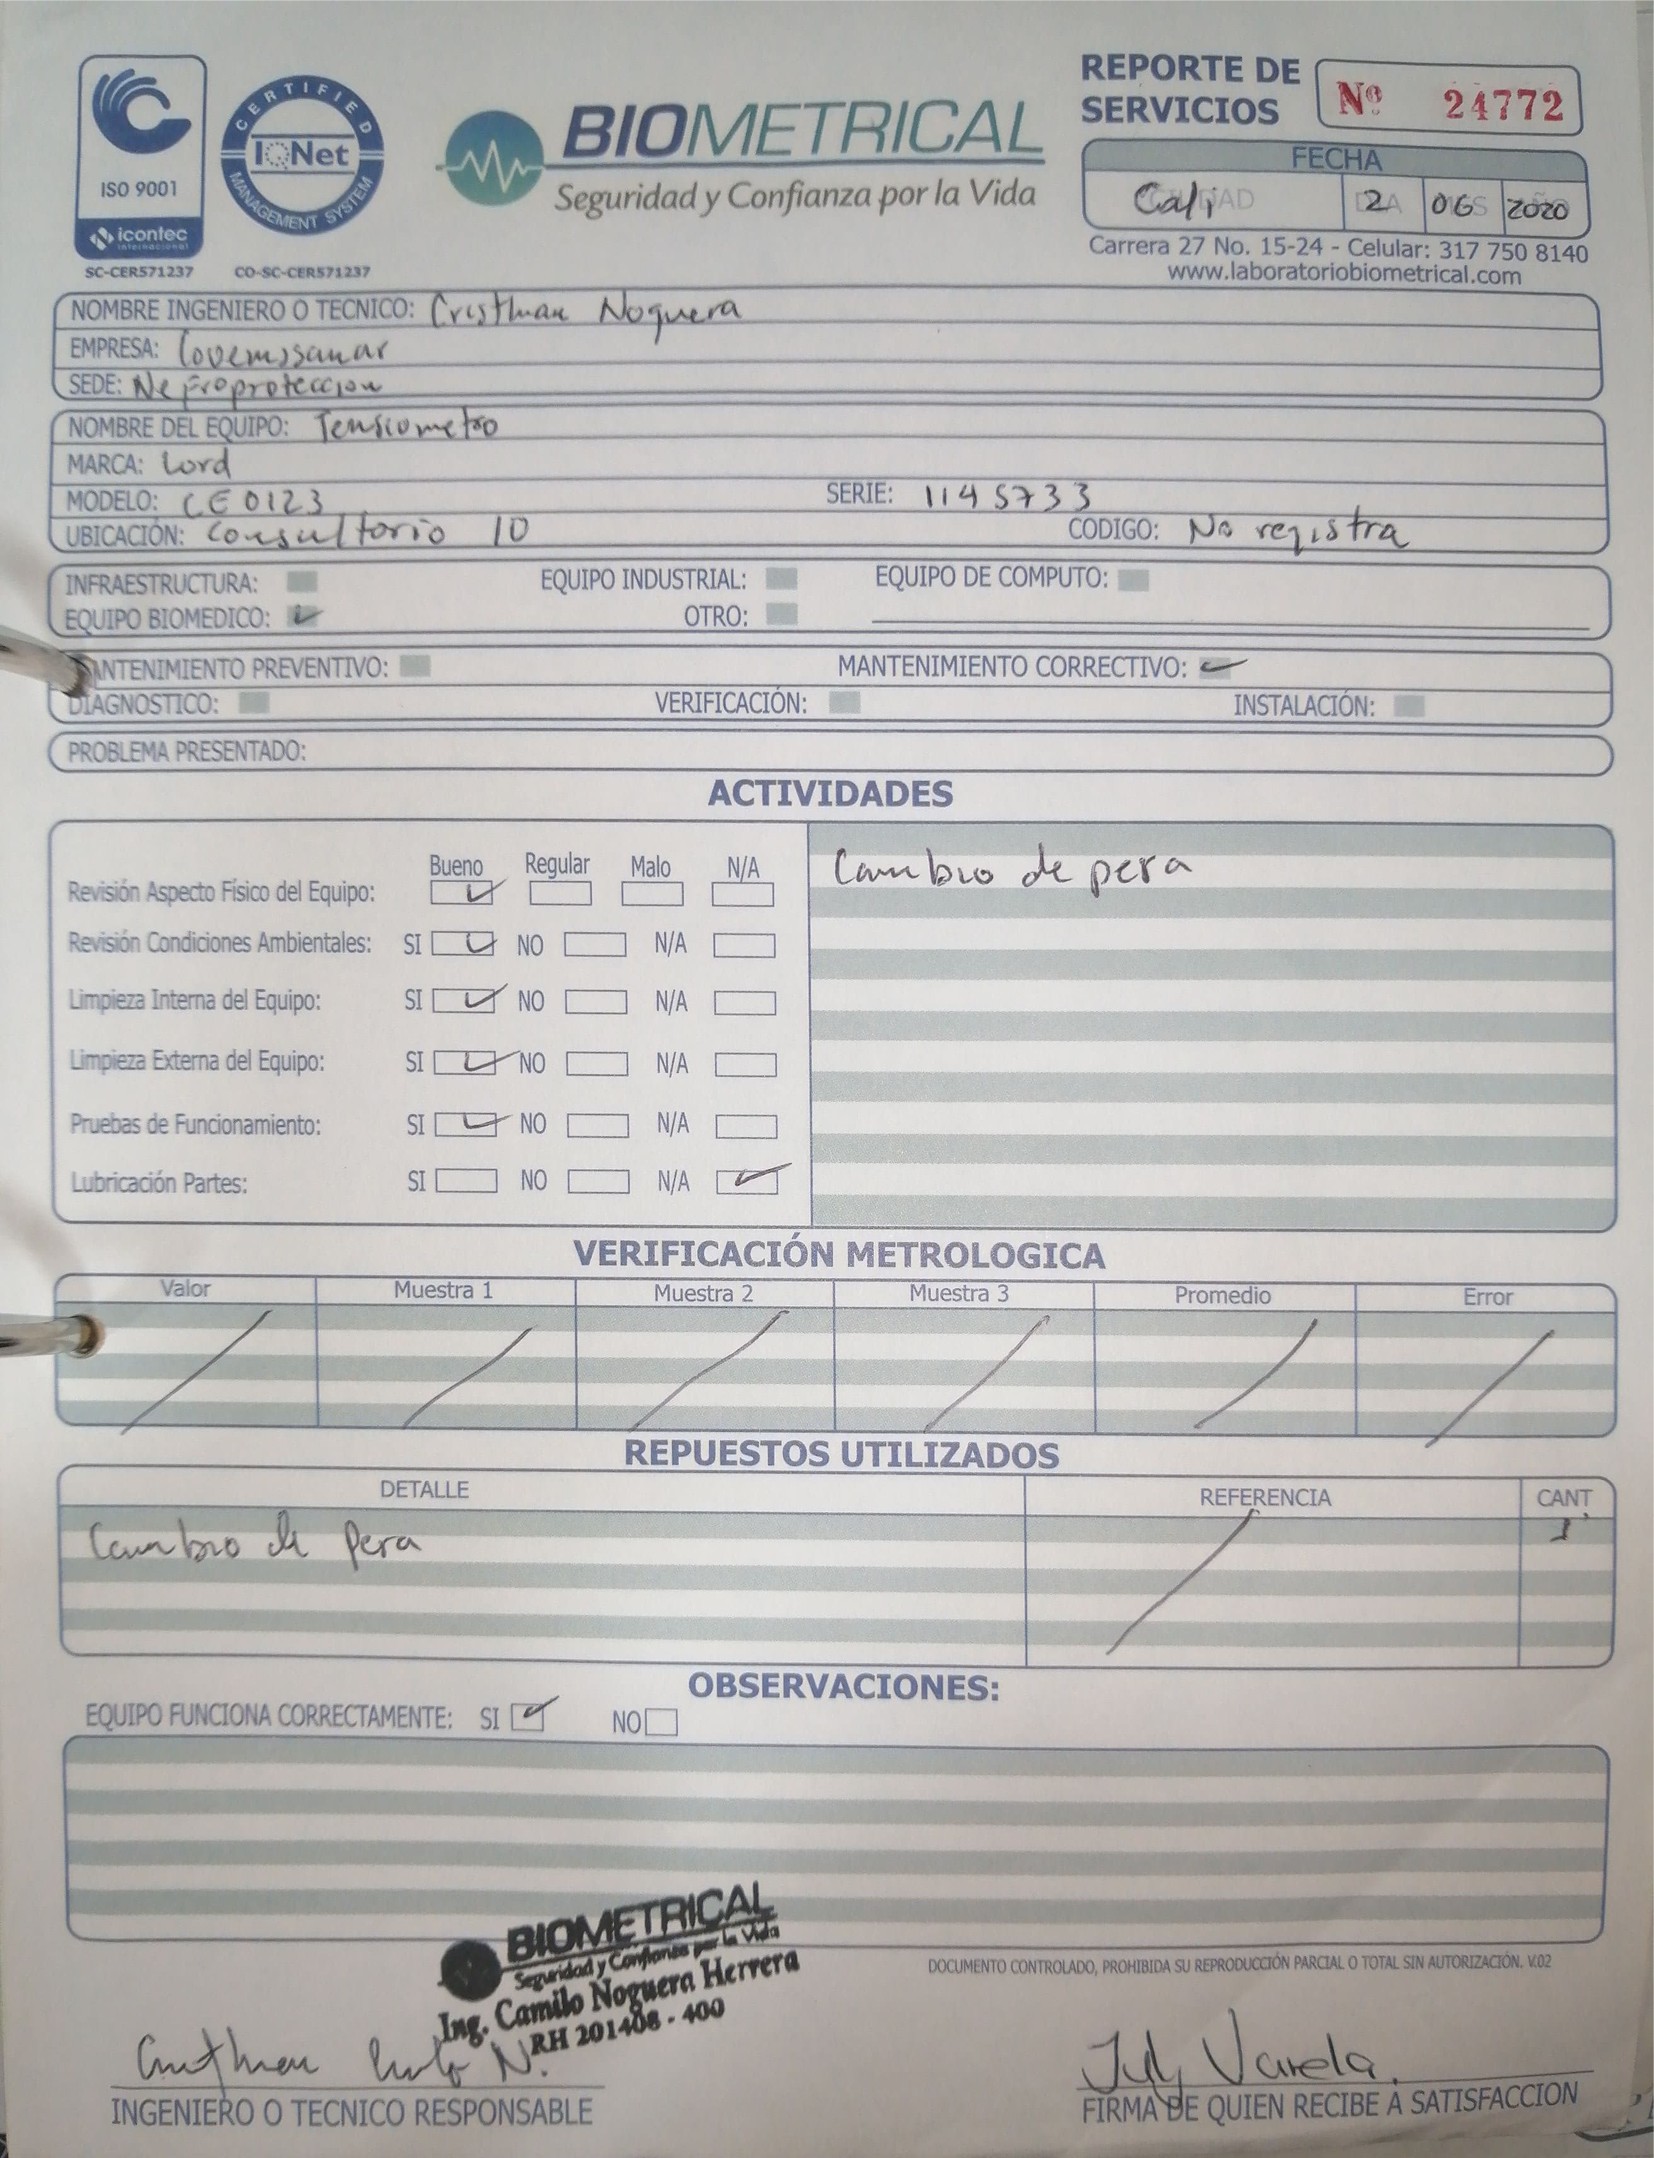 REPORTE DE
SERVICIOS
Nº 24772
ISO 9001
icontec
internacional
SC-CER571237
CERTIFIED
IQNet
MANAGEMENT SYSTEM
CO-SC-CER571237
BIOMETRICAL
Seguridad y Confianza por la Vida
FECHA
Cali 2 06 2020
Carrera 27 No. 15-24 - Celular: 317 750 8140
www.laboratoriobiometrical.com
NOMBRE INGENIERO O TECNICO: Cristhian Noguera
EMPRESA: Covemssanar
SEDE: Nefroproteccion
NOMBRE DEL EQUIPO: Tensiometro
MARCA: Lord
MODELO: CE0123 SERIE: 1145733
UBICACIÓN: Consultorio 10 CODIGO: No registra
INFRAESTRUCTURA: EQUIPO INDUSTRIAL: EQUIPO DE COMPUTO:
EQUIPO BIOMEDICO: ✓ OTRO:
MANTENIMIENTO PREVENTIVO: MANTENIMIENTO CORRECTIVO: ✓
DIAGNOSTICO: VERIFICACIÓN: INSTALACIÓN:
PROBLEMA PRESENTADO:
ACTIVIDADES
Bueno Regular Malo N/A
Revisión Aspecto Físico del Equipo: ✓
Cambio de pera
Revisión Condiciones Ambientales: SI ✓ NO N/A
Limpieza Interna del Equipo: SI ✓ NO N/A
Limpieza Externa del Equipo: SI ✓ NO N/A
Pruebas de Funcionamiento: SI ✓ NO N/A
Lubricación Partes: SI NO N/A ✓
VERIFICACIÓN METROLOGICA
Valor Muestra 1 Muestra 2 Muestra 3 Promedio Error
REPUESTOS UTILIZADOS
DETALLE REFERENCIA CANT.
Cambio de Pera 1
OBSERVACIONES:
EQUIPO FUNCIONA CORRECTAMENTE: SI ✓ NO
BIOMETRICAL
Seguridad y Confianza por la Vida
Ing. Camilo Noguera Herrera
RH 201408 - 400
DOCUMENTO CONTROLADO, PROHIBIDA SU REPRODUCCIÓN PARCIAL O TOTAL SIN AUTORIZACIÓN. V.02
Cristhian N.
July Varela
INGENIERO O TECNICO RESPONSABLE
FIRMA DE QUIEN RECIBE A SATISFACCION